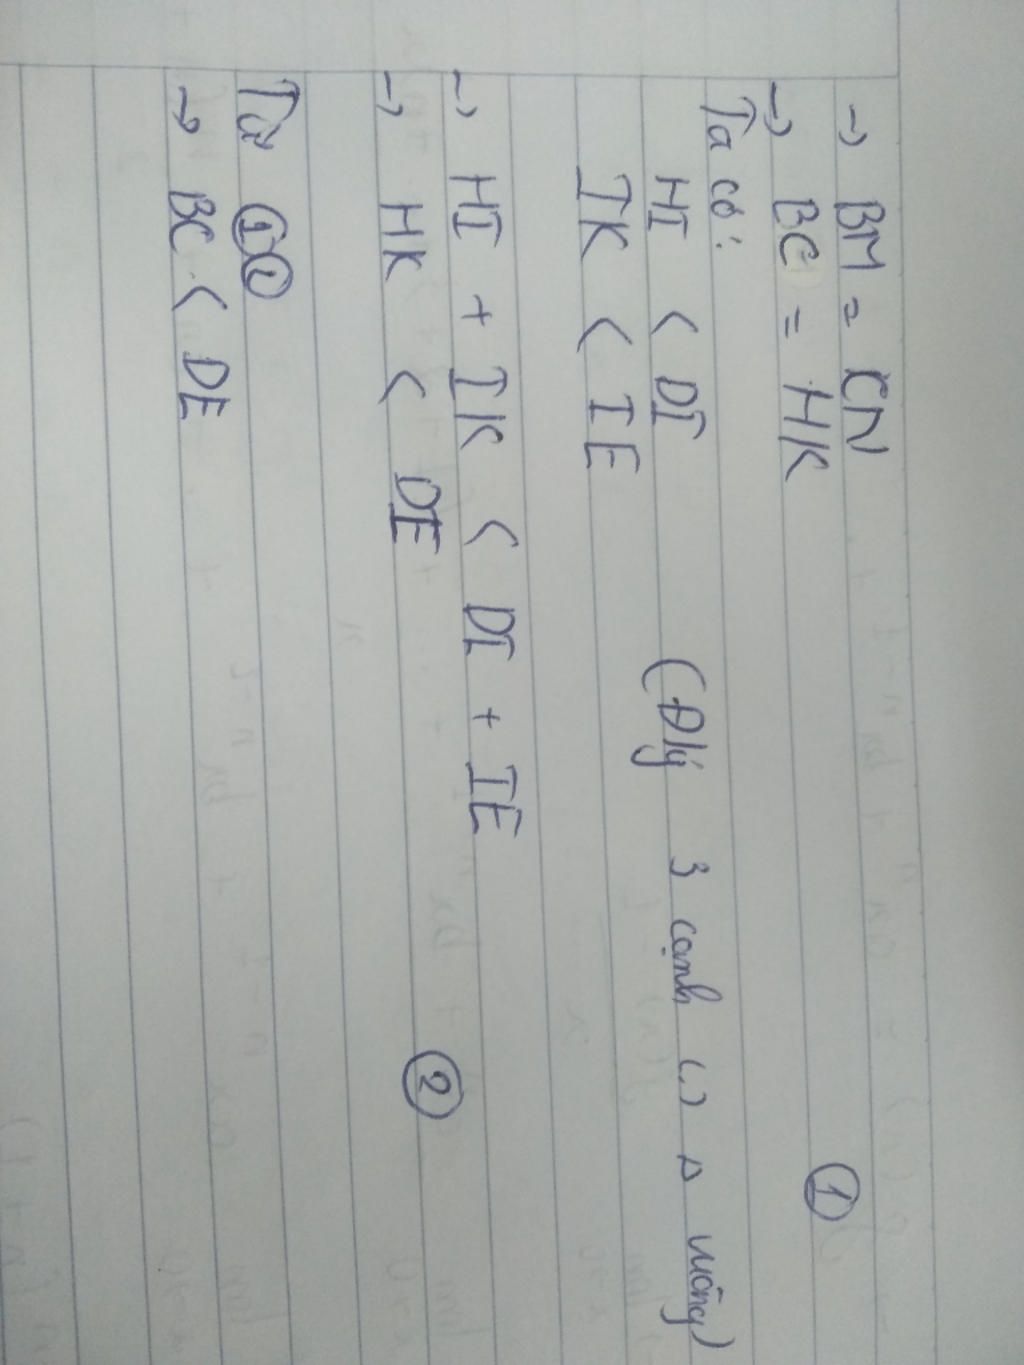 → BM = CN
→ BC = HK ①
Ta có:
HI < DI (Đlý 3 cạnh (.) Δ vuông)
IK < IE
→ HI + IK < DI + IE
→ HK < DE ②
Từ ① ②
→ BC < DE